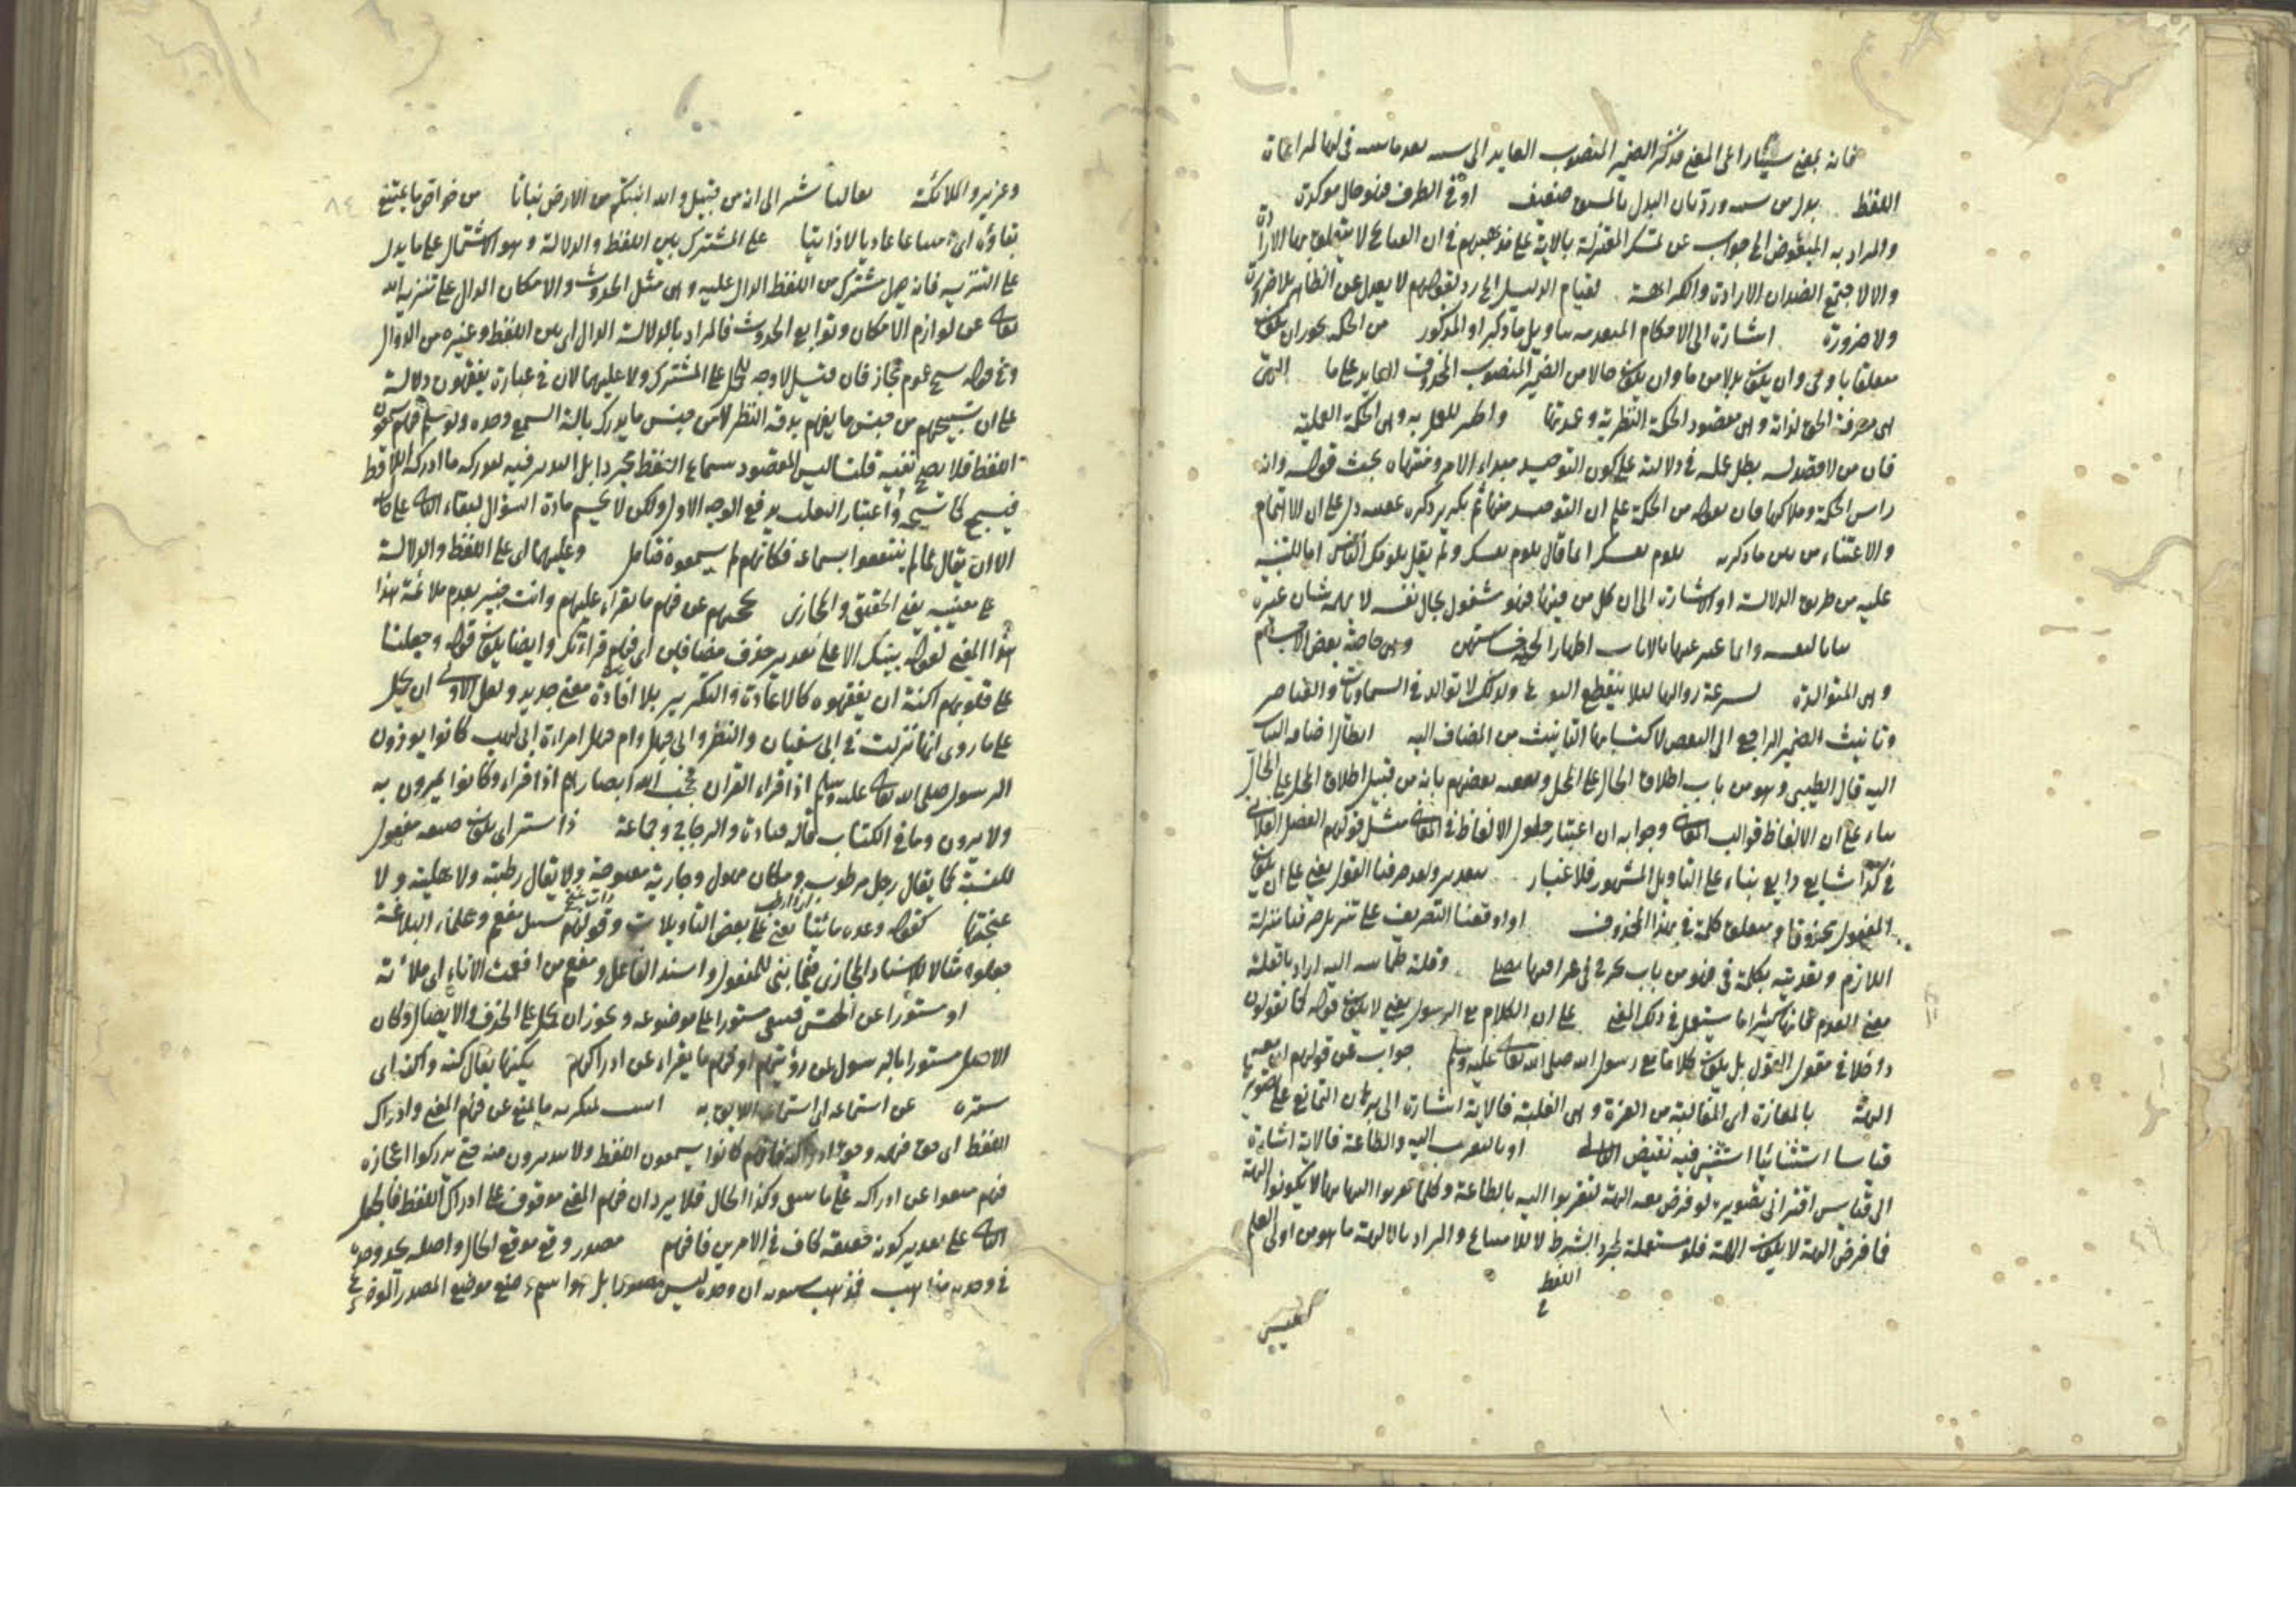 فانه بمعنى سيئا راعى المعنى فذكر الضمير المنصوب العايد الى
اللفظ بدل من سيئة ورد بان البدل بالمشتق ضعيف او في الظرف فهو حال مؤكدة
والمراد به المبغوض الخ جواب عن تمسك المعتزلة بالاية على مذهبهم في ان القبائح لا يتعلق بها الارادة
والا لاجتمع الضدان الارادة والكراهة لقيام الدليل الخ رد لقولهم لا يعدل عن الظاهر بلا ضرورة
ولا ضرورة اشارة الى الاحكام المتقدمة بتاويل ما ذكر او المذكور من الحكمة يجوز ان يكون
متعلقا باوحى وان يكون بدلا من ما وان يكون حالا من الضمير المنصوب المحذوف العايد على ما التي
هي معرفة الحق لذاته وهي مقصود الحكمة النظرية وعمدتها والخير للعمل به وهي الحكمة العملية
فان من لا قصد له بطل عمله في دلالته على كون التوحيد مبداء الامر ومنتهاه بحث قوله وانه
راس الحكمة وملاكها فان قوله من الحكمة علم ان التوحيد منها ثم تكرير ذكره عقيبه دل على ان الاهتمام
والاعتناء من بين ما ذكر به تلوم نفسك انما قال تلوم نفسك ولم يقل يلومك الناس اما للتنبيه
عليه من طريق الدلالة او الاشارة الى ان كل من فيها فهو مشغول بحال نفسه لا يهمه شان غيره
بنات لنفسه وانما عبر عنها بالاناث اظهارا لجهة خستهن وهي خاصة بعض الاجسام
وهي المتوالدة لسرعة زوالها لئلا ينقطع النوع ولذلك لا توالد في السماويات والعناصر
وتانيث الضمير الراجع الى البعض لاكتسابها التانيث من المضاف اليه ابطال اضافة البنات
اليه قال الطيبي وهو من باب اطلاق الحال على المحل وتعقبه بعضهم بانه من قبيل اطلاق المحل على الحال
بناء على ان الالفاظ قوالب المعاني وجوابه ان اعتبار حلول الالفاظ في المعاني مثل قولهم الفصل الفلاني
في كذا شايع ذايع بناء على التاويل المشهور فلا غبار بتقدير ولقد صرفنا القول يعني على ان يكون
المفعول محذوفا ومتعلق كلمة في هذا المحذوف او اوقعنا التصريف على تنزيل صرفنا منزلة
اللازم وتعديته بكلمة في فهو من باب يجرح في عراقيبها نصلي وقلة طمانينة اليه اراد بالقلة
معنى العدم فانها كثيرا ما يستعمل في ذلك المعنى على ان الكلام مع الرسول يعني لا يكون قوله كما تقولون
داخلا في مقول القول بل يكون كلاما مع رسول الله صلى الله تعالى عليه وسلم جواب عن قولهم ان معه
الهة بالمعازة اي المغالبة من العزة وهي الغلبة فالاية اشارة الى برهان التمانع على تصويره
قياسا استثنائيا استثنى فيه نقيض التالي او بالتقرب اليه والطاعة فالاية اشارة
الى قياس اقتراني تصويره لو فرض معه الهة لتقربوا اليه بالطاعة وكلما تقربوا اليه بها لا يكونوا الهة
فما فرض الهة لا يكون الهة فلو مستعملة لمجرد الشرط لا للامتناع والمراد بالالهة ما هو من اولى العلم
اللفظ
كعيسى
وعزير والملائكة تعاليا اشير الى انه من قبيل والله انبتكم من الارض نباتا من خواص ما يمتنع
بقاؤه اي امتناعا عاديا لا ذاتيا على المشترك بين اللفظ والدلالة وهو الاشتمال على ما يدل
على التنزيه فانه يحمل مشترك من اللفظ الدال عليه وهي مثل الحدوث والامكان الدال على تنزيه الله
تعالى عن لوازم الامكان وتوابع الحدوث فالمراد بالدلالة الدال اي بين اللفظ وغيره من الدوال
وفي قوله يسبح عموم مجاز فان قيل لا وجه للحمل على المشترك ولا عليهما لان في عبارة يفقهون دلالة
على ان تسبيحهم من جنس ما يفهم بدقة النظر لا من جنس ما يدرك بالة السمع وحده ولو سلم فهم يسمعون
اللفظ فلا يصح نفيه قلنا ليس المقصود سماع اللفظ مجردا بل التدبر فيه ليدركه ما ادركه اللاقط
فيسبح كما يسبحه واعتبار التغليب يدفع الوجه الاول ولكن لا يحسم مادة السؤال لبقاء الثاني على حاله
الا ان يقال لما لم ينتفعوا بسماعه فكانهم لم يسمعوه فتامل وعليهما اي على اللفظ والدلالة
على معنييه يعني الحقيقي والمجازي يحجبهم عن فهم ما تقراه عليهم وانت خبير بعدم ملائمة هذا
هذا المعنى لقوله بينك الا على تقدير حذف مضافين اي فهم قراءتك وايضا يكون قوله وجعلنا
على قلوبهم اكنة ان يفقهوه كالاعادة والتكرير بلا افادة معنى جديد ولعل الاولى ان يحمل
على ما روي انها نزلت في ابي سفيان والنضر وابي جهل وام جميل امراءة ابي لهب كانوا يوذون
الرسول صلى الله تعالى عليه وسلم اذا قراء القران فحجب الله ابصارهم اذا قراء وكانوا يمرون به
ولا يرونه وما في الكتاب قاله قتادة والزجاج وجماعة ذا ستر اي يكون صيغة مفعول
للنسبة كما يقال رجل مرطوب ومكان مهول وجارية مغنوجة ولا يقال رطبته ولا هلته ولا
غنجتها كقوله وعده ماتيا يعني على بعض التاويلات وقولهم سيل مفعم وعلماء البلاغة
جعلوه مثالا للاسناد المجازي فيما بني للمفعول واسند الفاعل ومفعم من افعمت الاناء اي ملاءته
او مستورا عن الحس فيبقى مستورا على موضوعه ويجوز ان يحمل على الحذف والايصال وكان
الاصل مستورا به الرسول عن رؤيتهم او فهم ما يقراء عن ادراكهم يكنها يقال كنه واكنه اي
ستره عن استماعه اي استماع اللائق به اثبت لمنكريه ما يمنع عن فهم المعنى وادراك
اللفظ اي حق فهمه وحق ادراكه فانهم كانوا يسمعون اللفظ ولا يتدبرون فيه حتى يدركوا اعجازه
فهم منعوا عن ادراكه على ما ينبغي وكذا الحال فلا يرد ان فهم المعنى موقوف على ادراك اللفظ فالحمل
الثاني على تقدير كونه حقيقة كاف في الامرين فافهم مصدر وقع موقع الحال واصله يحد وحده
في وحده مذاهب فمذهب سيبويه ان وحده ليس بمصدر بل هو اسم وضع موضع المصدر الموضوع